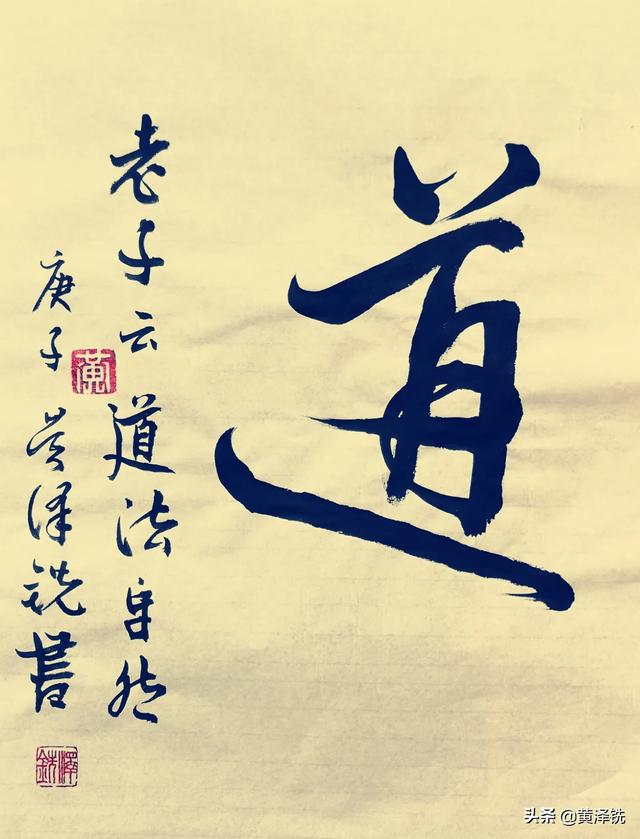 道
老子云道法自然
庚子黄泽铣书
黄
泽銑
头条 @黄泽铣